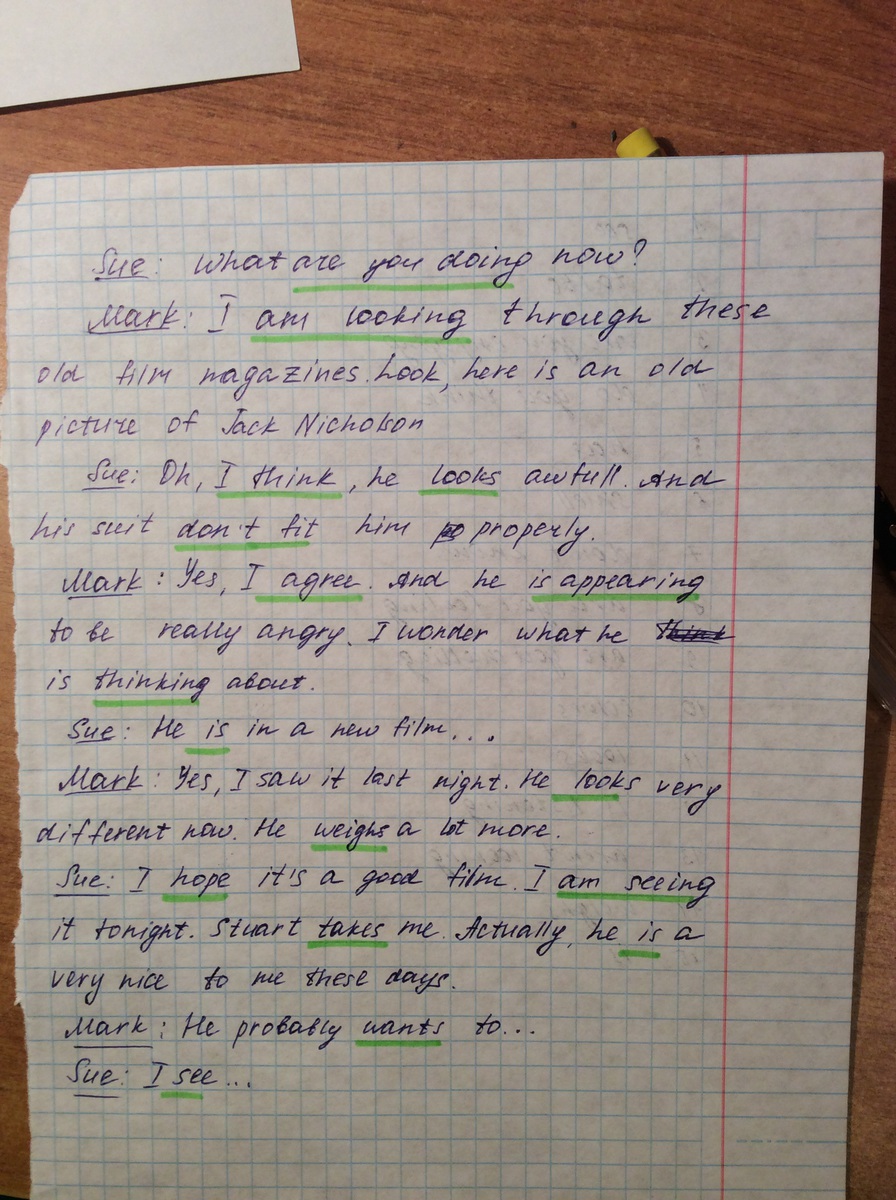 Sue: What are you doing now?
Mark: I am looking through these
old film magazines. Look, here is an old
picture of Jack Nicholson
Sue: Oh, I think, he looks awfull. And
his suit don't fit him properly.
Mark: Yes, I agree. And he is appearing
to be really angry. I wonder what he think
is thinking about.
Sue: He is in a new film...
Mark: Yes, I saw it last night. He looks very
different now. He weighs a lot more.
Sue: I hope it's a good film. I am seeing
it tonight. Stuart takes me. Actually, he is a
very nice to me these days.
Mark: He probably wants to...
Sue: I see...